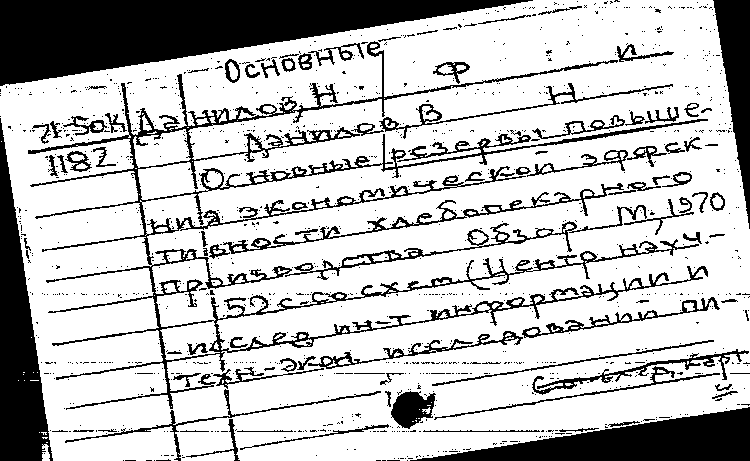 Основные
Данилов, Н Ф И
Данилов, В Н
1182
Основные резервы повыше-
ния экономической эффек-
тивности хлебопекарного
производства. Обзор. М., 1970
52 с. со схем. (Центр. науч.-
-исслед. ин-т информации и
техн.-экон. исследований пи-
след. карт